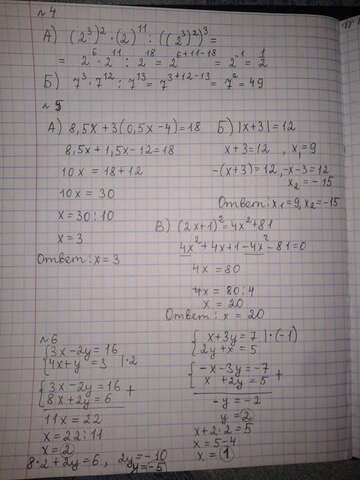 №4
А) (2³)² · (2)¹¹ : ((2³)²)³ =
= 2⁶ · 2¹¹ : 2¹⁸ = 2⁶⁺¹¹⁻¹⁸ = 2⁻¹ = 1/2
Б) 7³ · 7¹² : 7¹³ = 7³⁺¹²⁻¹³ = 7² = 49
№5
А) 8,5x + 3(0,5x - 4) = 18
8,5x + 1,5x - 12 = 18
10x = 18 + 12
10x = 30
x = 30 : 10
x = 3
Ответ: x = 3
Б) |x + 3| = 12
x + 3 = 12 , x₁ = 9
-(x + 3) = 12 , -x - 3 = 12
x₂ = -15
Ответ: x₁ = 9, x₂ = -15
В) (2x + 1)² = 4x² + 81
4x² + 4x + 1 - 4x² - 81 = 0
4x = 80
x = 80 : 4
x = 20
Ответ: x = 20
№6
{3x - 2y = 16
{4x + y = 3 | · 2
{3x - 2y = 16
{8x + 2y = 6 +
11x = 22
x = 22 : 11
x = 2
8 · 2 + 2y = 6 , 2y = -10
y = -5
{x + 3y = 7 | · (-1)
{2y + x = 5
{-x - 3y = -7
{x + 2y = 5 +
-y = -2
y = 2
x + 2 · 2 = 5
x = 5 - 4
x = 1